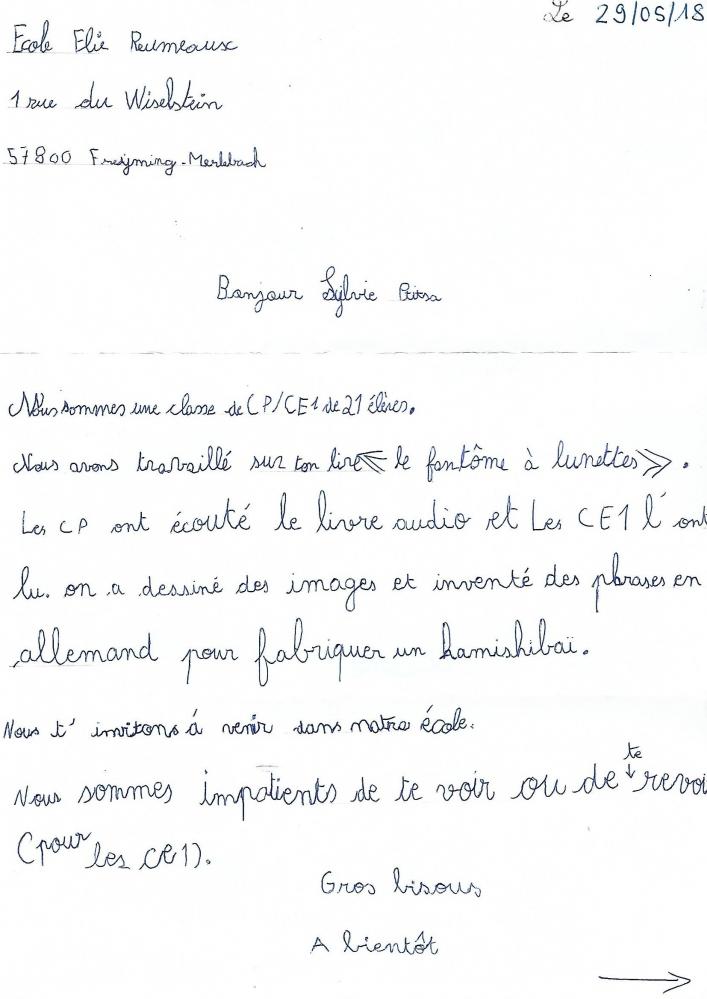 Le 29/05/18
Ecole Elie Reumeaux
1 rue du Wiselstein
57800 Freyming-Merlebach
Bonjour Sylvie
Nous sommes une classe de CP/CE1 de 21 élèves.
Nous avons travaillé sur ton livre << le fantôme à lunettes >>.
Les CP ont écouté le livre audio et Les CE1 l'ont
lu. on a dessiné des images et inventé des phrases en
allemand pour fabriquer un kamishibaï.
Nous t'invitons á venir dans notre école.
te
Nous sommes impatients de te voir ou de ↓ revoi
(pour les CE1).
Gros bisous
A bientôt
→